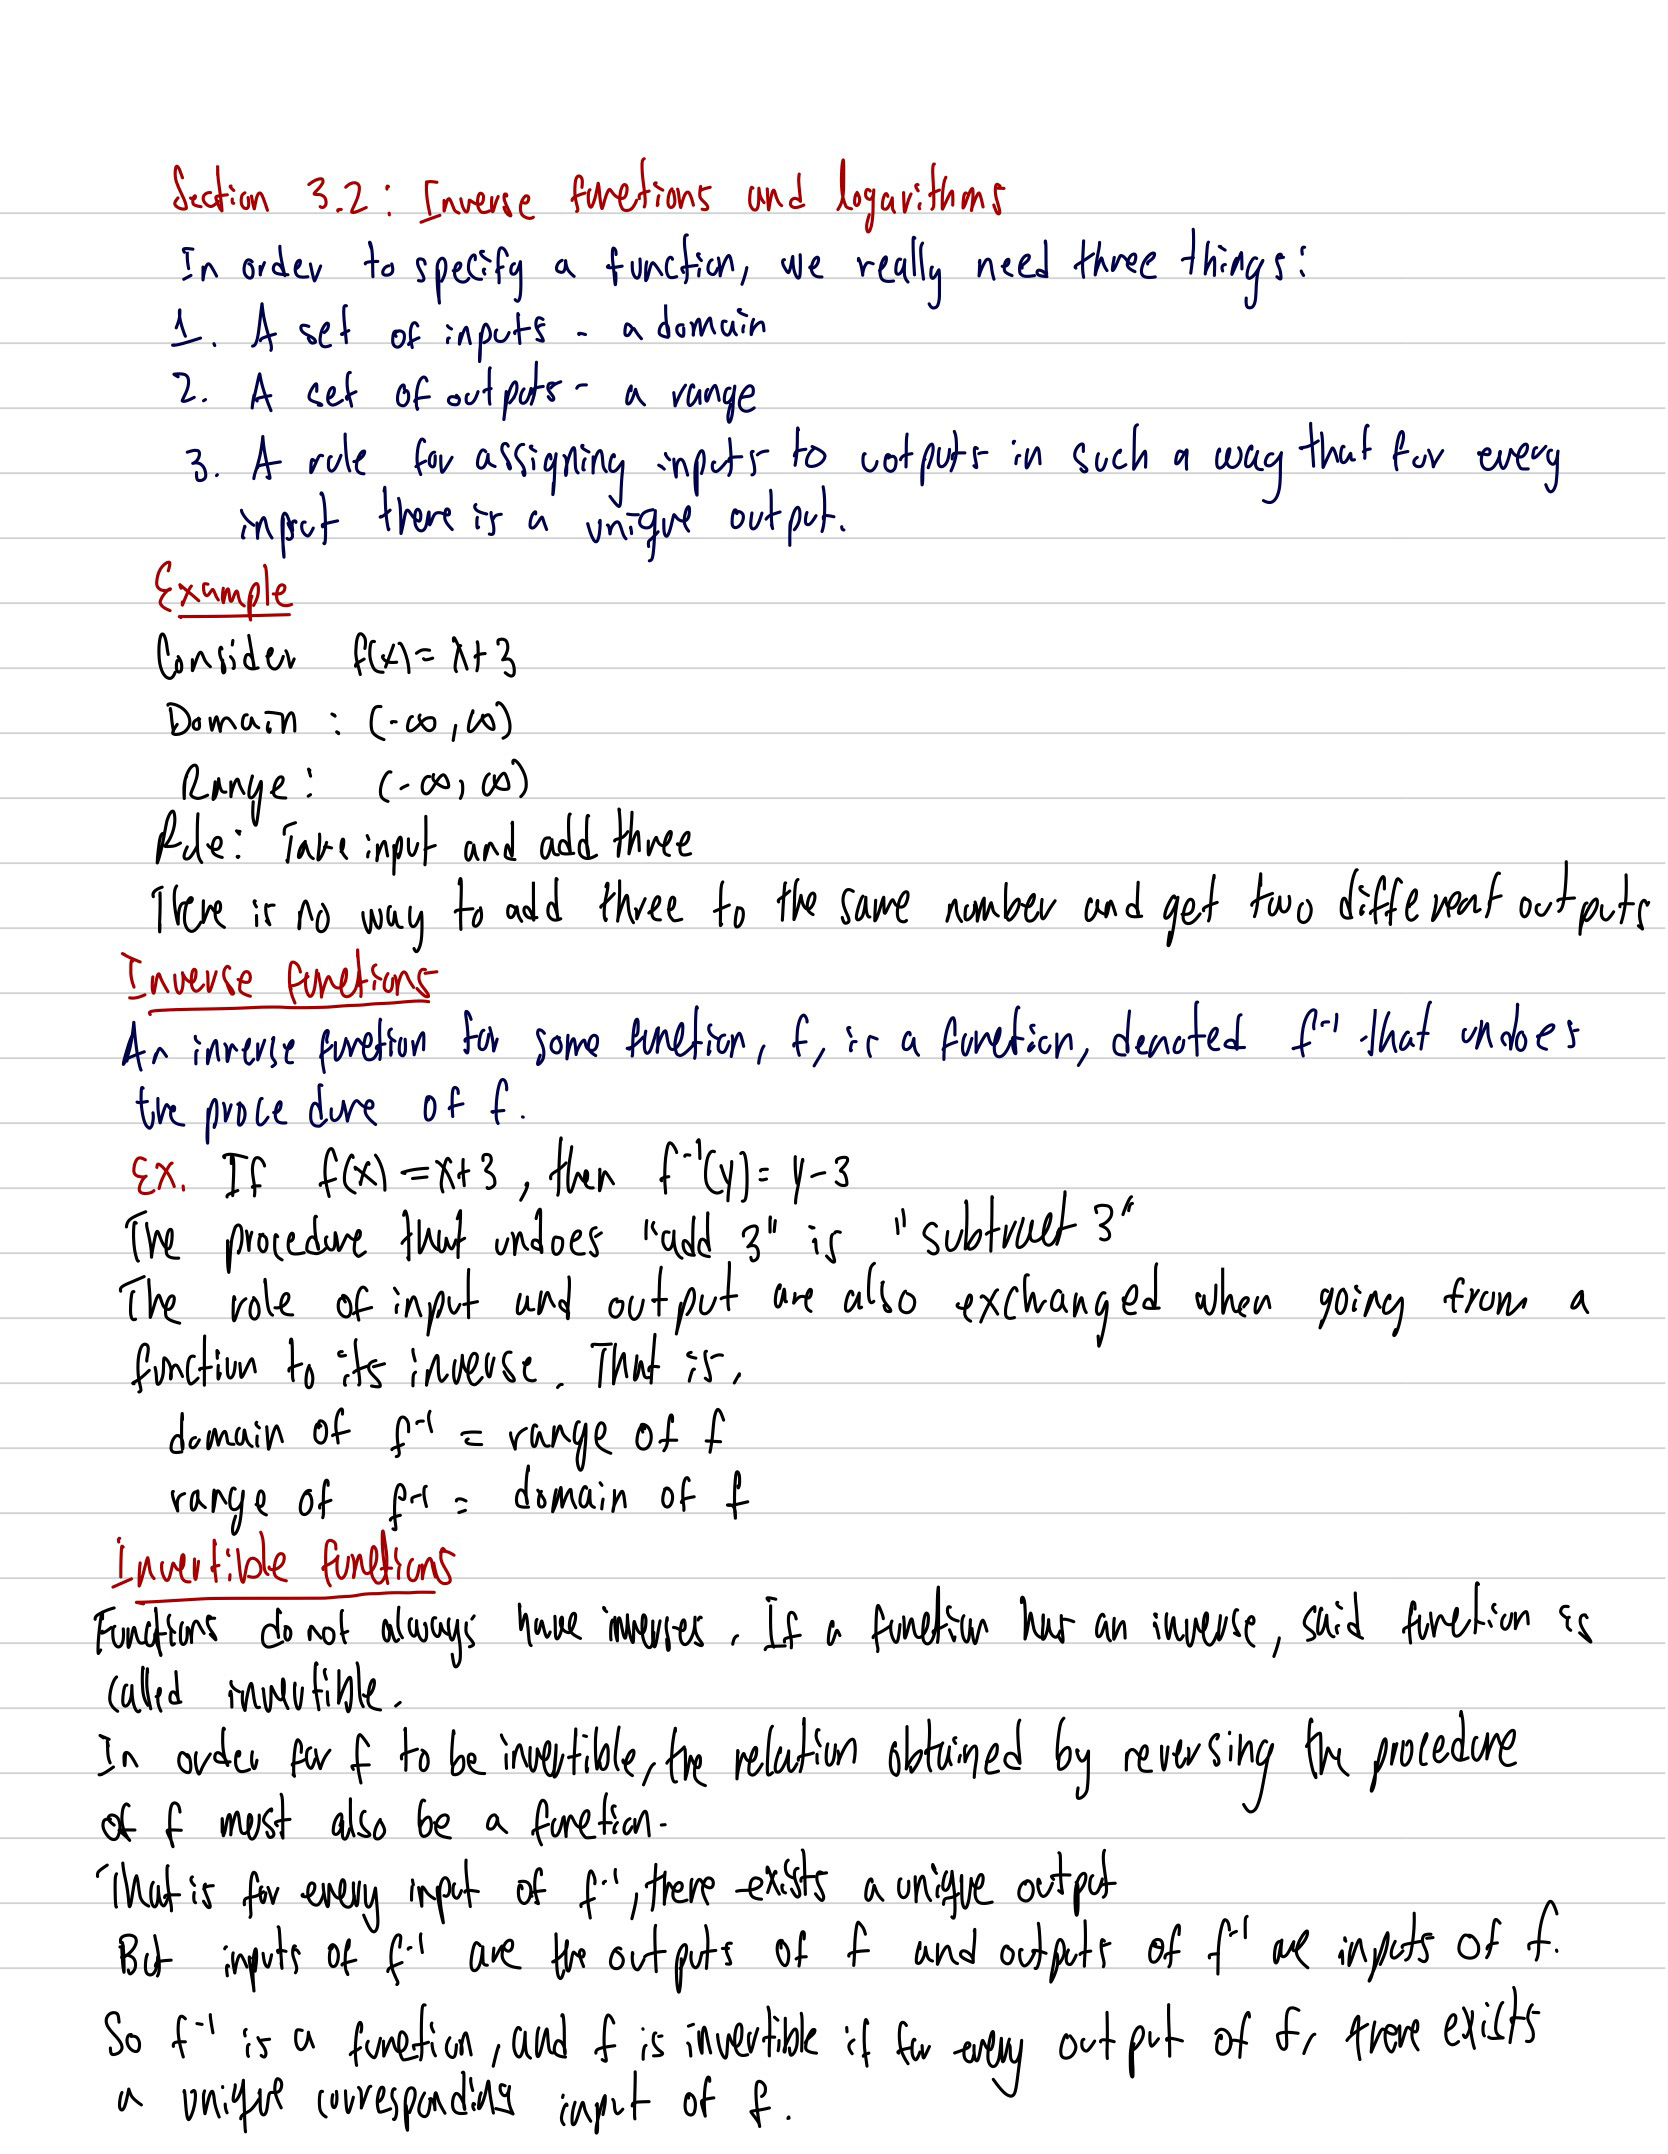 Section 3.2: Inverse functions and logarithms
In order to specify a function, we really need three things:
1. A set of inputs - a domain
2. A set of outputs - a range
3. A rule for assigning inputs to outputs in such a way that for every
input there is a unique output.
Example
Consider f(x) = x+3
Domain : (-∞, ∞)
Range: (-∞, ∞)
Rule: Take input and add three
There is no way to add three to the same number and get two different outputs
Inverse functions
An inverse function for some function, f, is a function, denoted f⁻¹ that undoes
the procedure of f.
Ex. If f(x) = x+3, then f⁻¹(y) = y-3
The procedure that undoes "add 3" is "subtract 3"
The role of input and output are also exchanged when going from a
function to its inverse. That is,
domain of f⁻¹ = range of f
range of f⁻¹ = domain of f
Invertible functions
Functions do not always have inverses. If a function has an inverse, said function is
called invertible.
In order for f to be invertible, the relation obtained by reversing the procedure
of f must also be a function.
That is for every input of f⁻¹, there exists a unique output
But inputs of f⁻¹ are the outputs of f and outputs of f⁻¹ are inputs of f.
So f⁻¹ is a function, and f is invertible if for every output of f, there exists
a unique corresponding input of f.